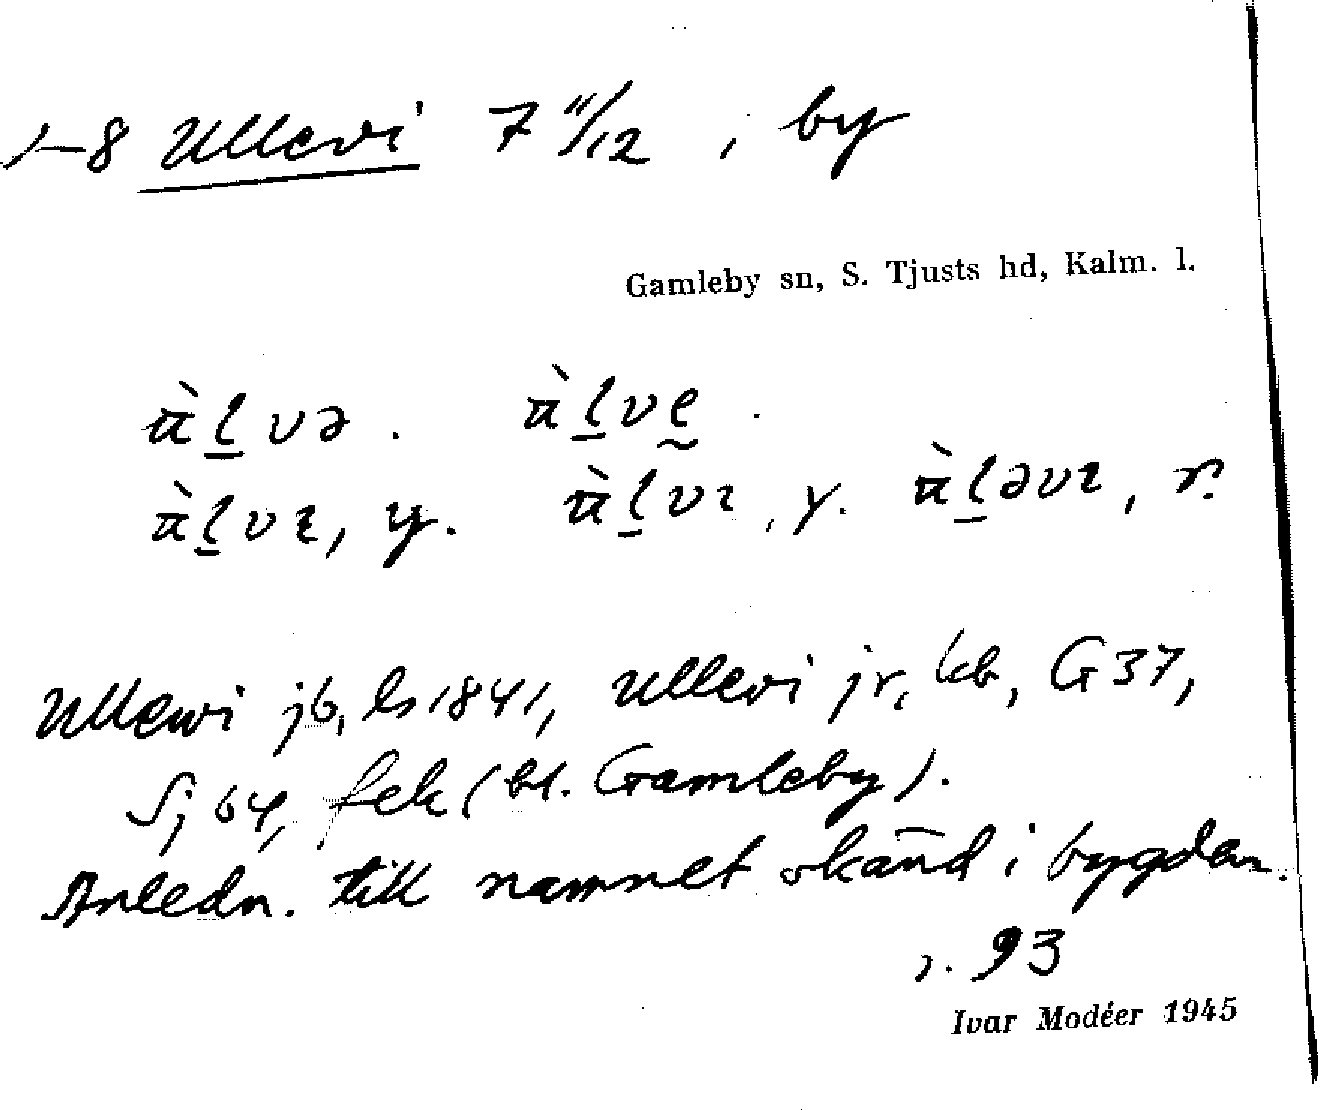 1-8 Ullevi 7 11/12, by
Gamleby sn, S. Tjusts hd, Kalm. l.
ùḻvə. ùḻvḛ.
ùḻvɪ, y. ùḻvɪ, y. ùḻəvɪ, r.
Ullewi jb, ls 1841, Ullevi jr, kb, G 37,
Sj 64, fek (bl. Gamleby).
Anledn. till namnet okänd i bygden.
s. 93
Ivar Modéer 1945